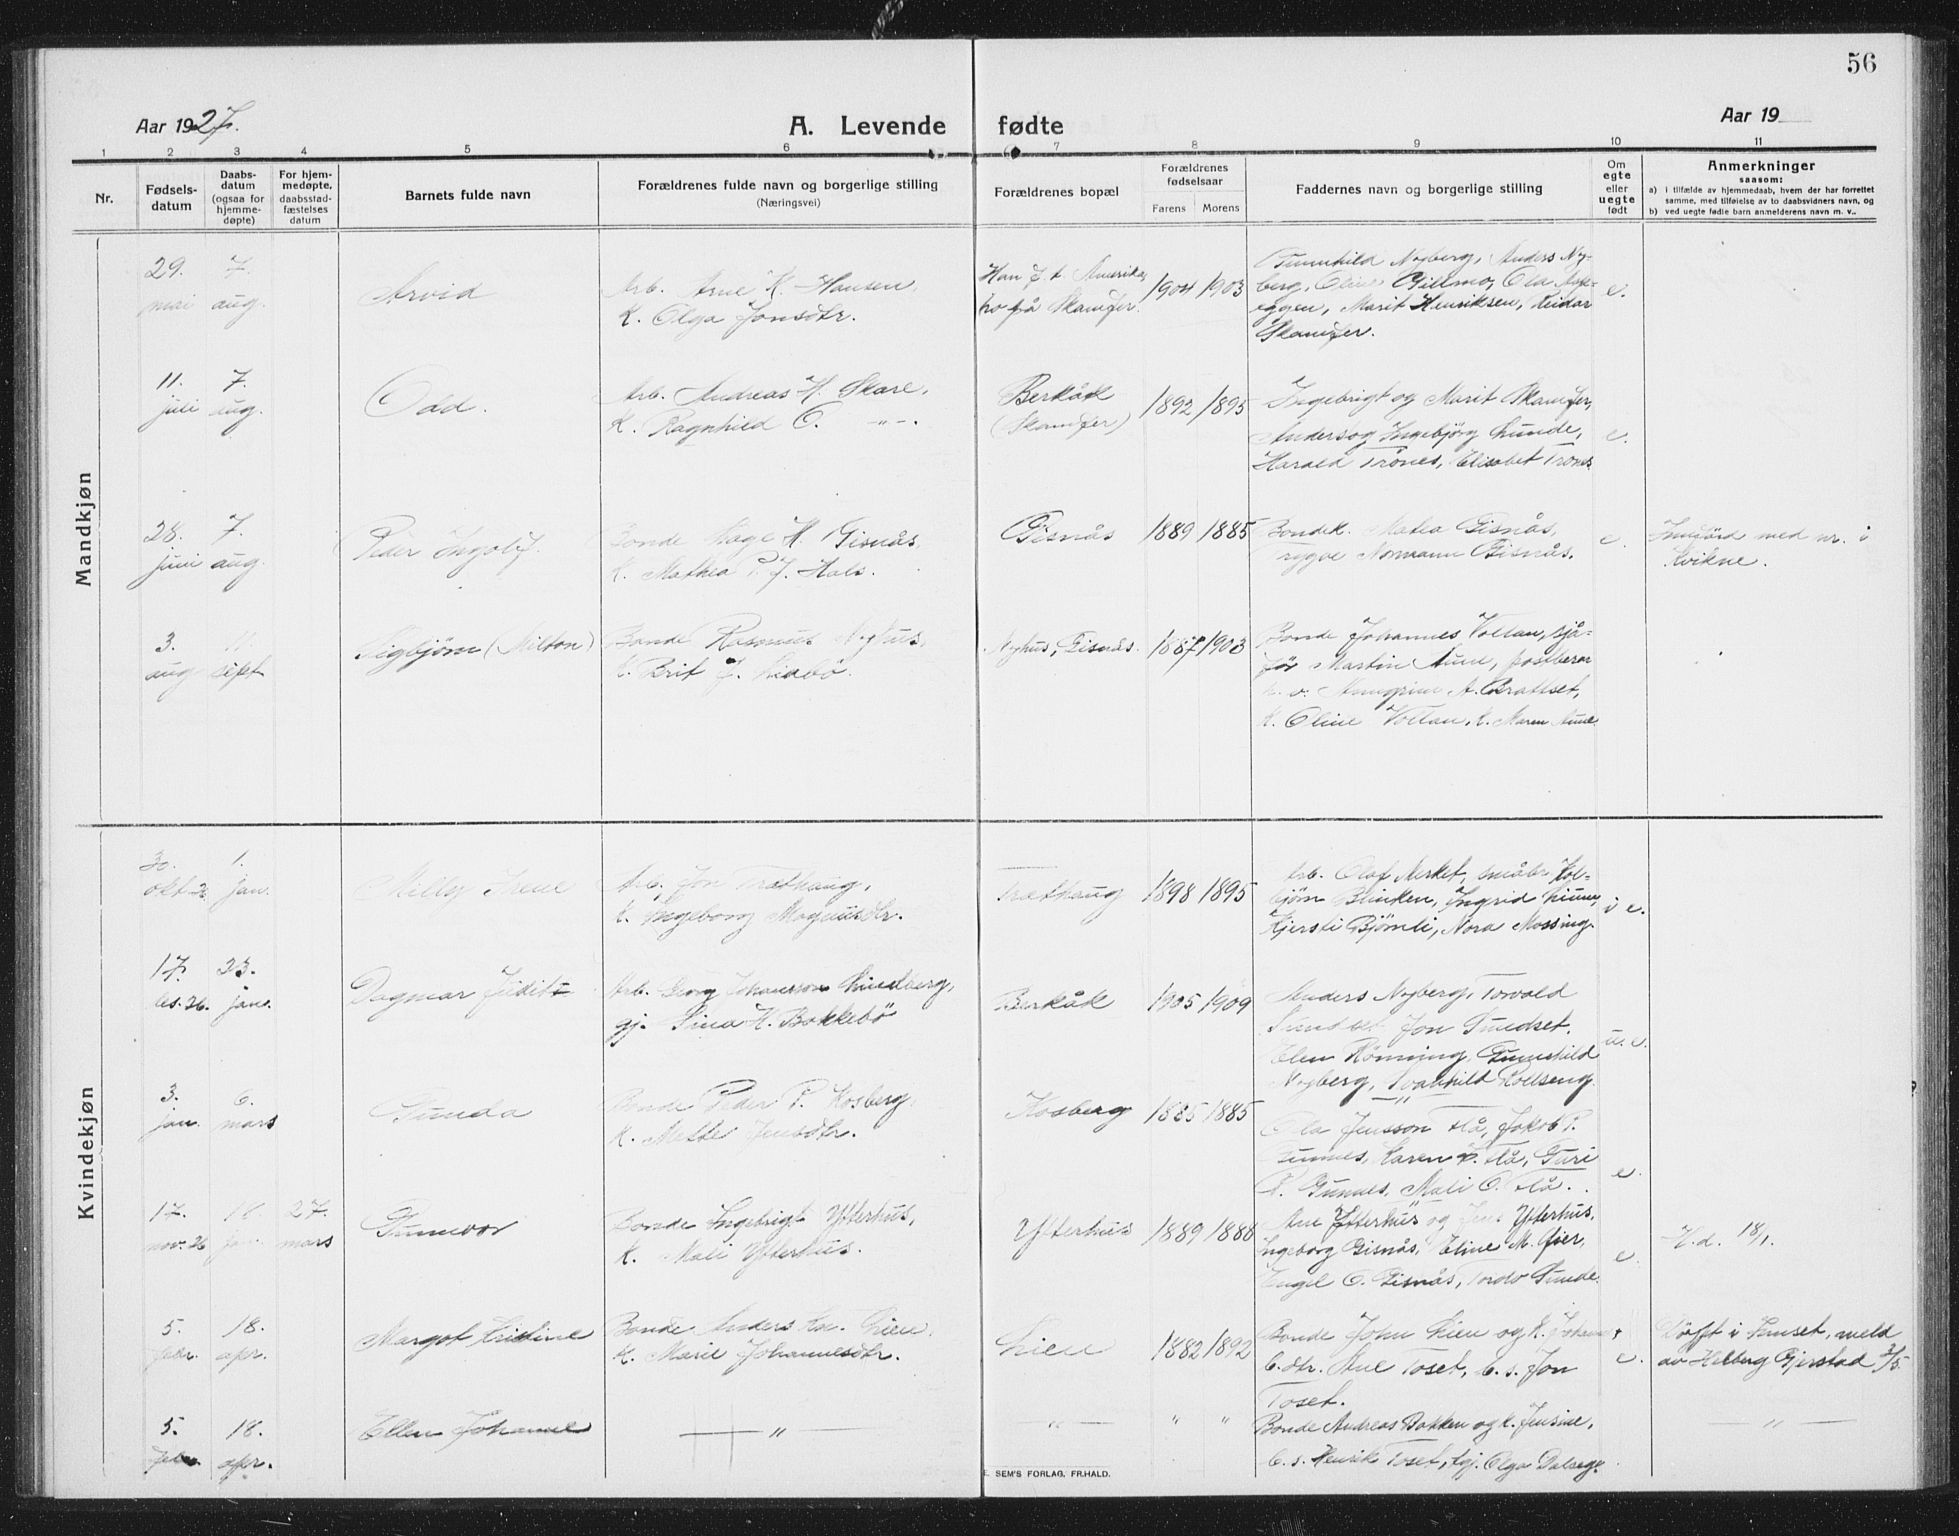 56
Aar 1927.
A. Levende fødte
Aar 19
1 2 3 4 5 6 7 8 9 10 11
Nr.
Fødsels-
datum
Daabs-
datum
(ogsaa for
hjemme-
døpte)
For hjem-
medøpte,
daabsstad-
fæstelses
datum
Barnets fulde navn
Forældrenes fulde navn og borgerlige stilling
(Næringsvei)
Forældrenes bopæl
Forældrenes
fødselsaar
Farens Morens
Faddernes navn og borgerlige stilling
Om
egte
eller
uegte
født
Anmerkninger
saasom:
a) i tilfælde av hjemmedaab, hvem der har forrettet
samme, med tilføielse av to daabsvidners navn, og
b) ved uegte fødte barn anmelderens navn m. v..
Mandkjøn
29. mai
7. aug.
Arvid
Arb. Arne K. Hansen
K. Olga Jonsdtr.
Han f. t. Amerika,
ho på Skamfer.
1904 1903
Gunnhild Nyberg, Anders Ny-
berg, Oline Gillmo, Ola
eggen, Marit Henriksen, Reidar
Skamfer.
e.
11. juli
7. aug.
Odd.
Arb. Andreas H. Skare,
K. Ragnhild O. -"-.
Berkåk
(Skamfer)
1892 1895
Ingebrigt og Marit Skamfer,
Anders og Ingebjørg Lunde,
Harald Trönes, Elisabet Trönes
e.
28. juni
7. aug.
Peder Ingolf.
Bonde Hage H. Gisnås,
K. Mathea P. J. Hals.
Gisnås
1889 1885
Bondek. Matea Gisnås,
Trygve Normann Gisnås.
e.
Innførd med nr. i
Kvikne.
3. aug.
11. sept
Sigbjørn (Milton)
Bonde Rasmus Nyhus,
K. Brit J. Liabö.
Nyhus, Gisnås.
1887 1903
Bonde Johannes Vollan, sjå-
før Martin Aune, postberar
A. Brattset,
K. Oline Vollan, K. Maren Aune
Kvindekjøn
30. okt. 26
1. jan.
Milly Irene
Arb. Jon Træthaug,
K. Ingeborg Magnusdtr.
Træthaug
1898 1895
Arb. Olaf Merket, småbr. Kol-
bjørn Blinken, Ingrid
Kjersti Bjørnli, Nora Mossing.
e.
17. des. 26.
23. jan.
Dagmar Judit
Arb. Georg Johansson Lindberg,
gj. Lina H. Bakkebö
Berkåk
1905 1909
Anders Nyberg, Torvald
Sundset, Jon Sundset,
Elen Rönning, Gunnhild
Nyberg,
u. e.
3. jan.
6. mars
Gunda
Bonde Peder P. Kosberg,
K. Mette Jensdtr.
Kosberg
1885 1885
Ola Jensson Flå, Jakob P.
Gunnes, Karen P. Flå, Guri
P. Gunnes, Mali O. Flå.
e.
17. nov. 26
18. jan.
27. mars
Gunnvor
Bonde Ingebrigt Ytterhus,
K. Mali Ytterhus.
Ytterhus
1889 1888
Ane Ytterhus og Jens Ytterhus,
Ingeborg Gisnås, Eline M. Gjer,
Engel O. Gisnås, Tordis Gunde.
e
H.d. 18/1.
5. febr.
18. apr.
Margot Kristine
Bonde Anders Kn. Lien,
K. Marie Johannesdtr.
Lien
1882 1892
Bonde John Lien og K. Johanna,
b. dtr. Ane Toset, b. s. Jon
Toset.
e.
Döypt i Innset, meld
av Helberg Gjerstad 3/5.
5. febr.
18. apr.
Ellen Johanne
— " —
" —
" "
Bonde Andreas Bakken og K. Jensine,
b. s. Henrik Toset, Olga
" —
E. SEM'S FORLAG, FR.HALD.